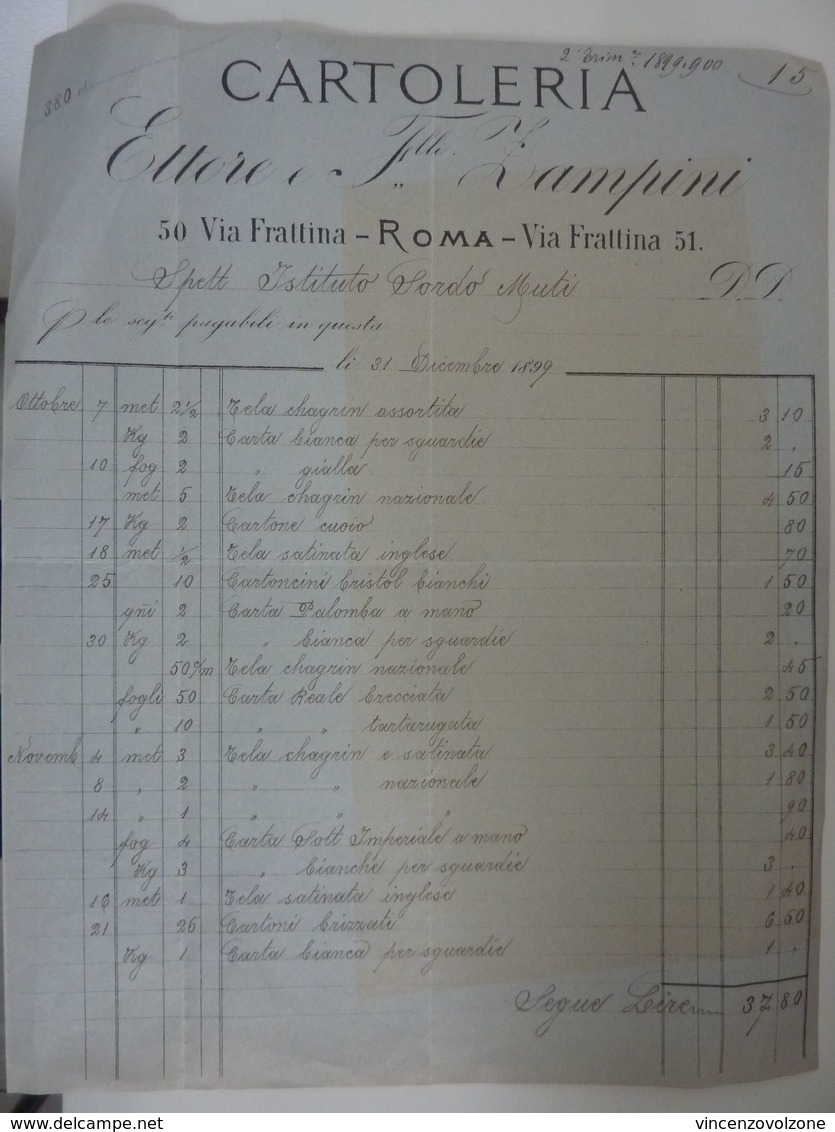 2° Trim.e 1899-900
15
380
CARTOLERIA
Ettore e F.lli Zampini
50 Via Frattina - ROMA - Via Frattina 51.
Spett Istituto Sordo Muti D.D.
P le segti pagabili in questa
li 31 Dicembre 1899
Ottobre 7 met 2 1/2 Tela chagrin assortita 3 10
Kg 2 Carta bianca per sguardie 2 .
10 fog 2 " gialla 15
met 5 Tela chagrin nazionale 4 50
17 Kg 2 Cartone cuoio 80
18 met 1/2 Tela satinata inglese 70
25 10 Cartoncini bristol bianchi 1 50
gñi 2 Carta Palomba a mano 20
30 Kg 2 " bianca per sguardie 2 .
50 c/m Tela chagrin nazionale 45
fogli 50 Carta Reale brecciata 2 50
" 10 " " tartarugata 1 50
Novemb 4 met 3 Tela chagrin e satinata 3 40
8 " 2 " " nazionale 1 80
14 " 1 " " " 90
fog 4 Carta Sott Imperiale a mano 40
Kg 3 " bianche per sguardie 3 .
16 met 1 Tela satinata inglese 1 40
21 26 Cartoni brizzati 6 50
Kg 1 Carta bianca per sguardie 1 .
Segue Lire 37 80
delcampe.net
vincenzovolzone